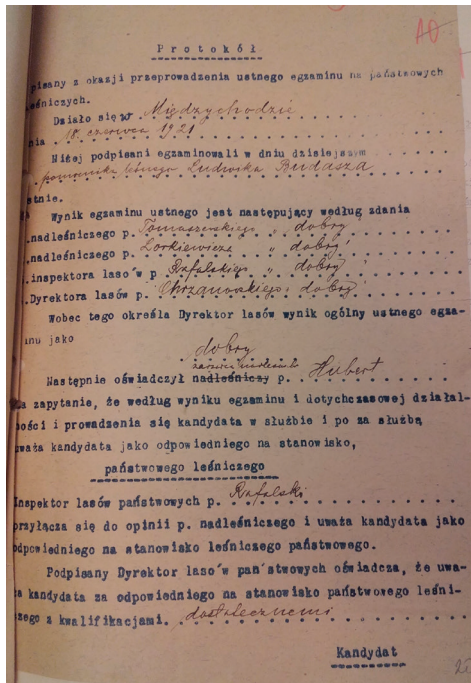 A0
Protokół
pisany z okazji przeprowadzenia ustnego egzaminu na państwowych
leśniczych.
Działo się w Międzychodzie
nia 18. czerwca 1921
Niżej podpisani egzaminowali w dniu dzisiejszym
pomocnika leśnego Ludwika Budasza
stnie.
Wynik egzaminu ustnego jest następujący według zdania
.nadleśniczego p. Tomaszewskiego " dobry
.nadleśniczego p. Lorkiewicza " dobry
.inspektora lasów p Rafalskiego " dobry
.Dyrektora lasów p. Chrzanowskiego: dobry
Wobec tego określa Dyrektor lasów wynik ogólny ustnego egza-
inu jako
dobry
Następnie oświadczył nadleśniczy p. Hubert
a zapytanie, że według wyniku egzaminu i dotychczasowej działal-
ności i prowadzenia się kandydata w służbie i po za służbą
uważa kandydata jako odpowiedniego na stanowisko,
państwowego leśniczego
Inspektor lasów państwowych p. Rafalski
przyłącza się do opinii p. nadleśniczego i uważa kandydata jako
odpowiedniego na stanowisko leśniczego państwowego.
Podpisany Dyrektor lasów państwowych oświadcza, że uwa-
za kandydata za odpowiedniego na stanowisko państwowego leśni-
czego z kwalifikacjami. dostatecznemi
Kandydat